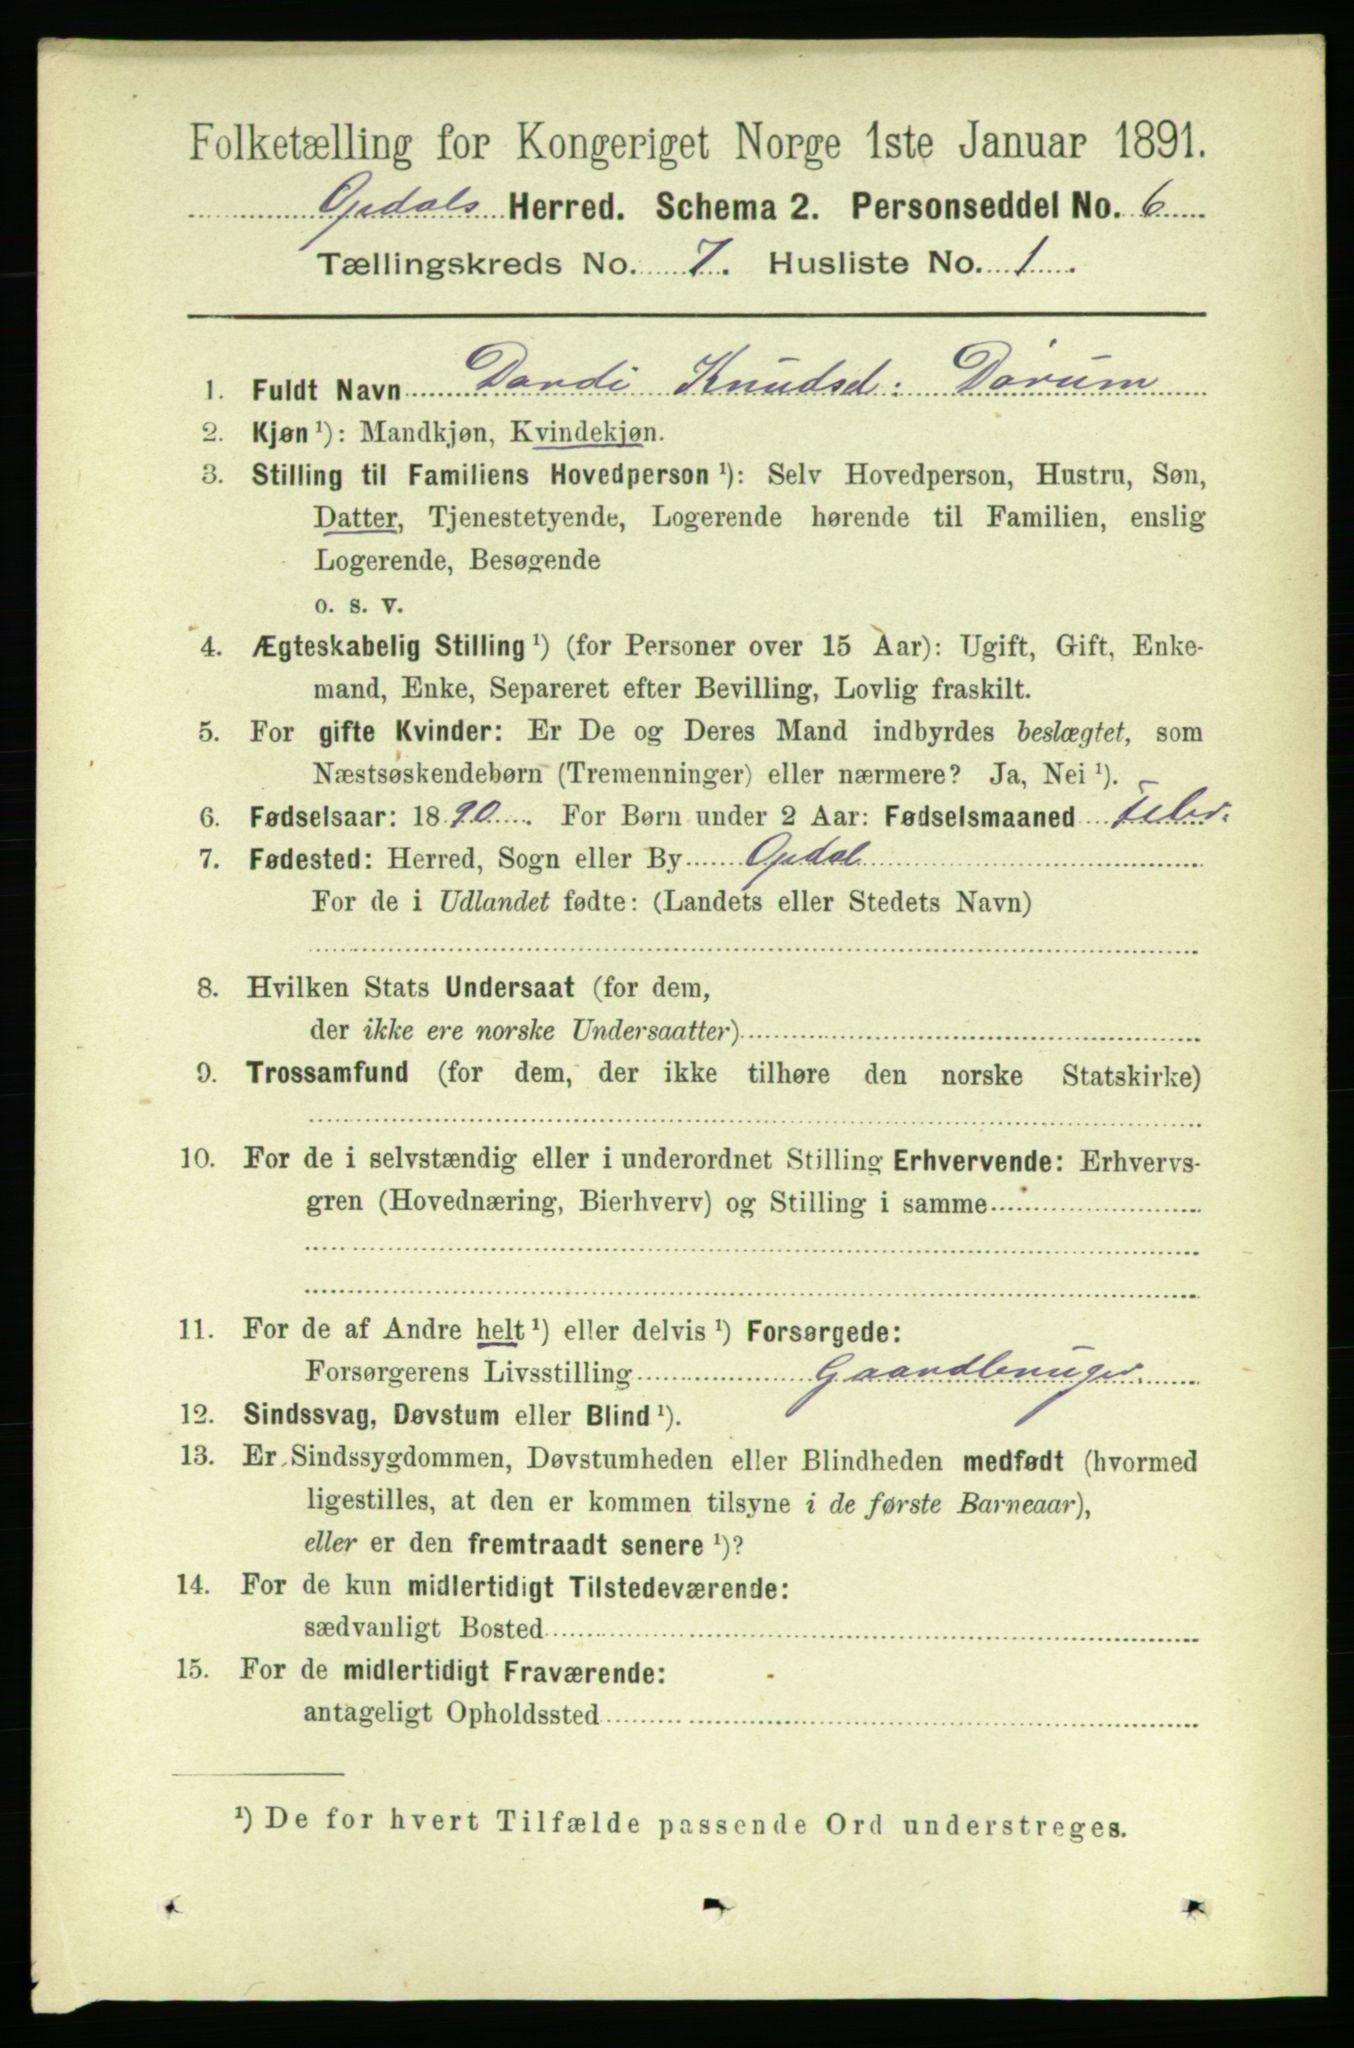 Folketælling for Kongeriget Norge 1ste Januar 1891.
Opdals Herred. Schema 2. Personseddel No. 6
Tællingskreds No. 7. Husliste No. 1
1. Fuldt Navn Dordi Knudsd: Dørum
2. Kjøn ¹): Mandkjøn, Kvindekjøn.
3. Stilling til Familiens Hovedperson ¹): Selv Hovedperson, Hustru, Søn,
Datter, Tjenestetyende, Logerende hørende til Familien, enslig
Logerende, Besøgende
o. s. v.
4. Ægteskabelig Stilling ¹) (for Personer over 15 Aar): Ugift, Gift, Enke-
mand, Enke, Separeret efter Bevilling, Lovlig fraskilt.
5. For gifte Kvinder: Er De og Deres Mand indbyrdes beslægtet, som
Næstsøskendebørn (Tremenninger) eller nærmere? Ja, Nei ¹).
6. Fødselsaar: 1890. For Børn under 2 Aar: Fødselsmaaned Febr.
7. Fødested: Herred, Sogn eller By Opdal
For de i Udlandet fødte: (Landets eller Stedets Navn)
8. Hvilken Stats Undersaat (for dem,
der ikke ere norske Undersaatter)
9. Trossamfund (for dem, der ikke tilhøre den norske Statskirke)
10. For de i selvstændig eller i underordnet Stilling Erhvervende: Erhvervs-
gren (Hovednæring, Bierhverv) og Stilling i samme
11. For de af Andre helt ¹) eller delvis ¹) Forsørgede:
Forsørgerens Livsstilling Gaardbruger.
12. Sindssvag, Døvstum eller Blind ¹).
13. Er Sindssygdommen, Døvstumheden eller Blindheden medfødt (hvormed
ligestilles, at den er kommen tilsyne i de første Barneaar),
eller er den fremtraadt senere ¹)?
14. For de kun midlertidigt Tilstedeværende:
sædvanligt Bosted
15. For de midlertidigt Fraværende:
antageligt Opholdssted
¹) De for hvert Tilfælde passende Ord understreges.